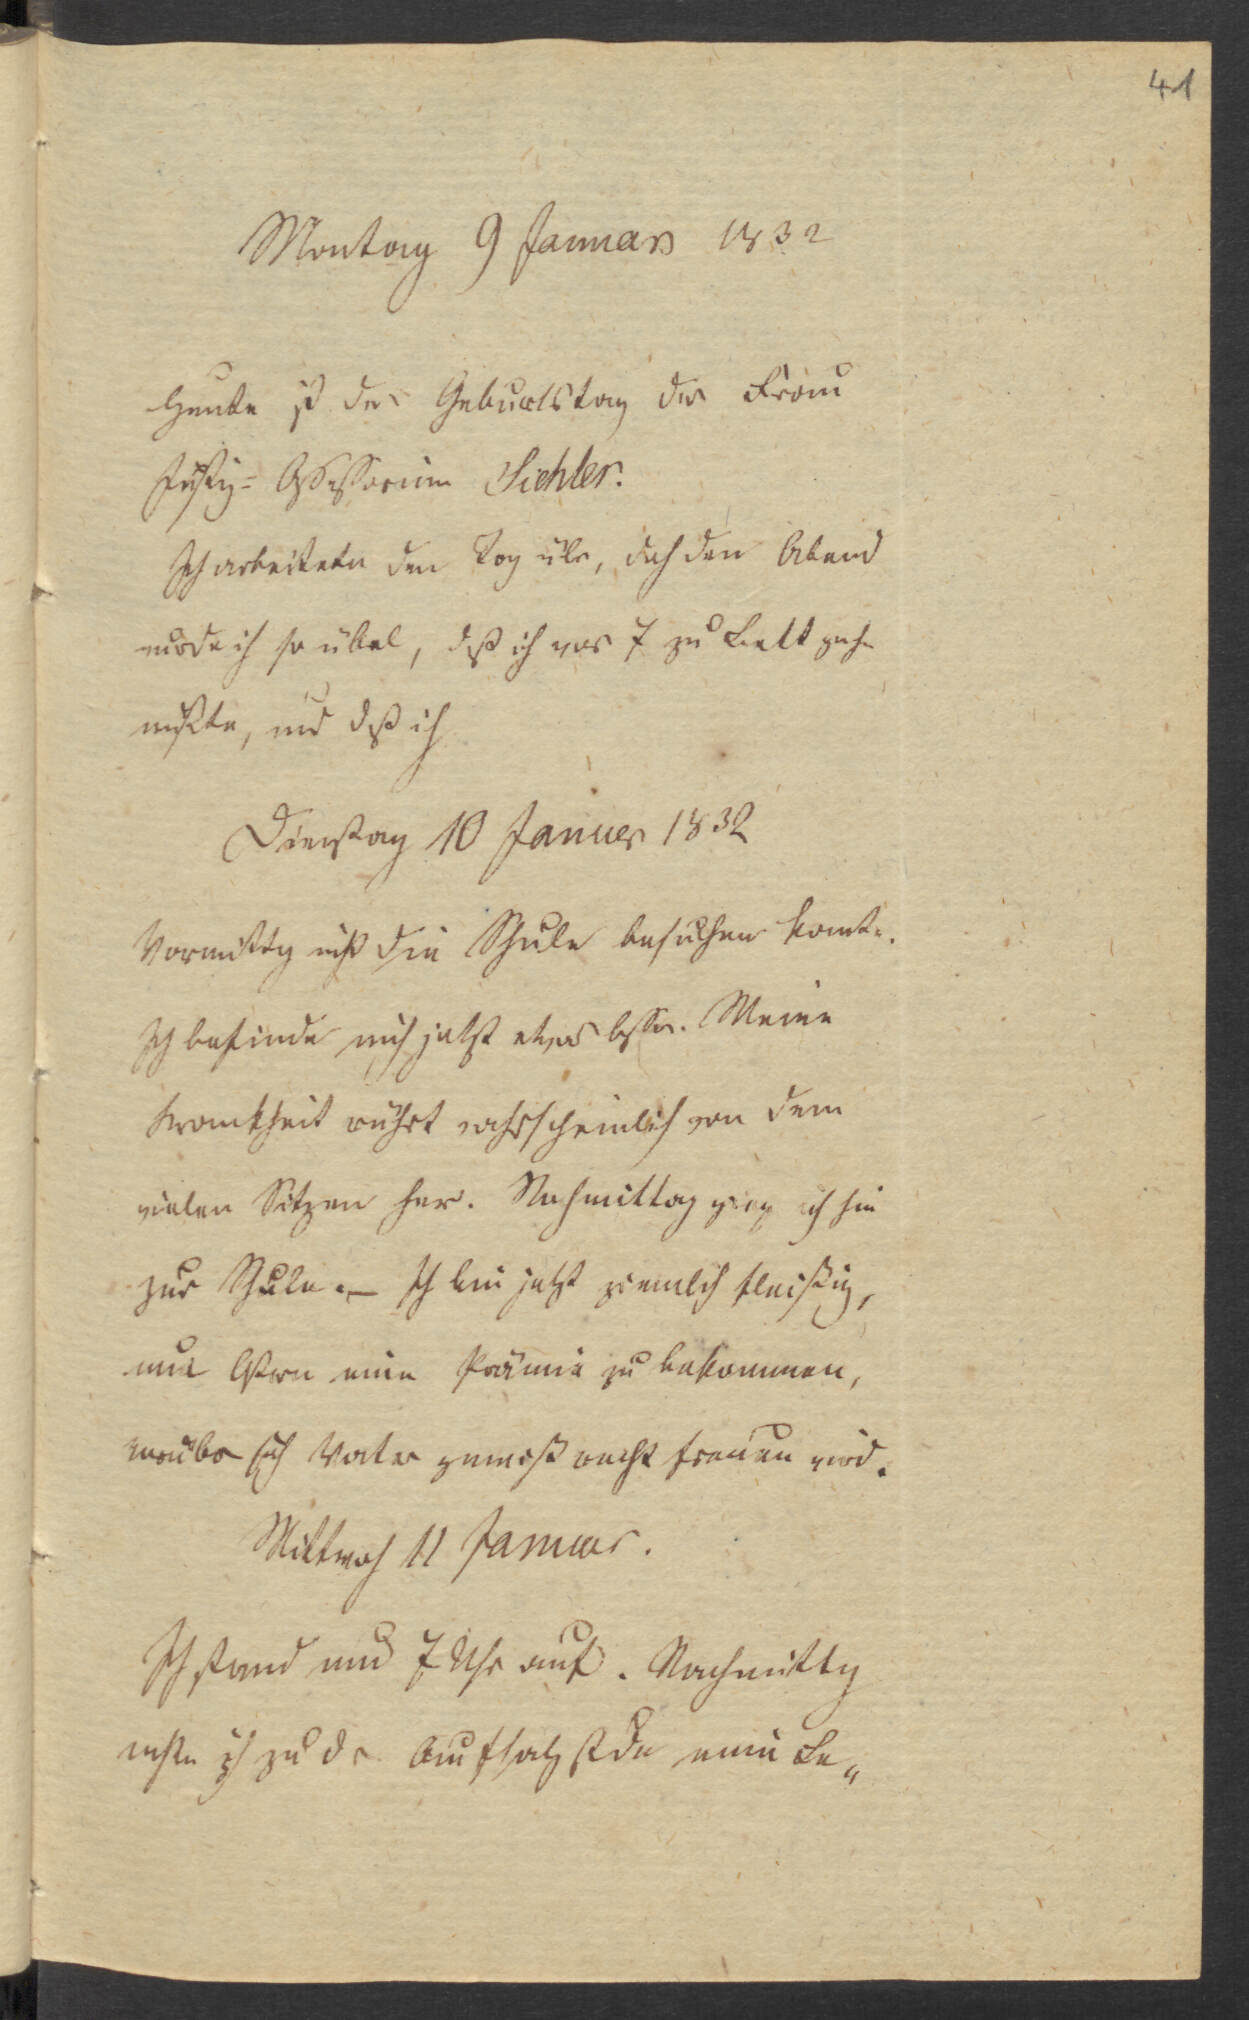 41
Montag 9 Januar 1832
Heute ist der Geburtstag der Frau
Justiz= Assessorinn Sichler.
Ich arbeitete den Tag über, doch den Abend
wurde ich so übel, daß ich vor 7 zu Bett gehn
mußte, und daß ich
Dienstag 10 Januar 1832
Vormittag nicht die Schule besuchen konnte.
Ich befinde mich jetzt etwas besser. Meine
Krankheit rührt wahrscheinlich von dem
vielen Sitzen her. Nachmittag ging ich hin
zur Schule. – Ich bin jetzt ziemlich fleißig,
um Ostern eine Prämie zu bekommen,
worüber sich Vater gewiß recht freuen wird.
Mittwoch 11 Januar.
Ich stand um 7 Uhr auf. Nachmittag
ich zu der Aufsatzstunde eine Be„